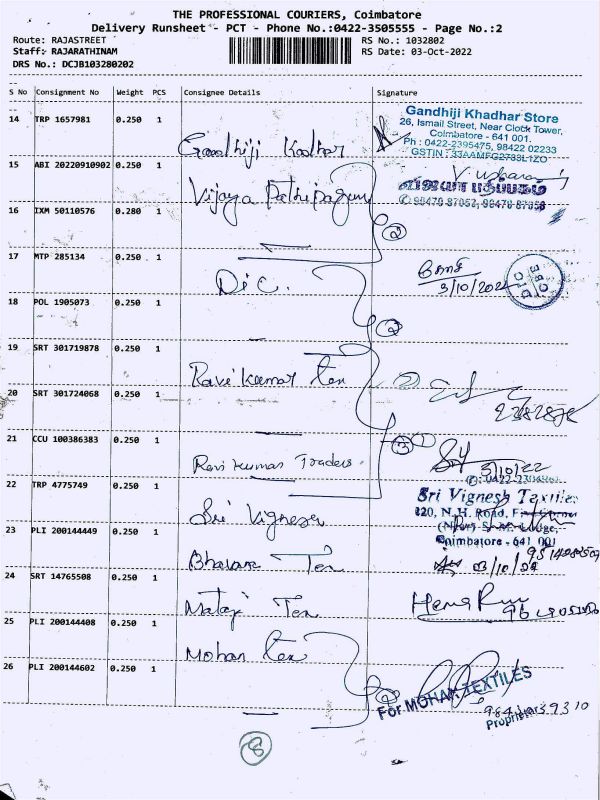 THE PROFESSIONAL COURIERS, Coimbatore
Delivery Runsheet - PCT - Phone No.:0422-3505555 - Page No.:2
Route: RAJASTREET RS No.: 1032802
Staff: RAJARATHINAM RS Date: 03-Oct-2022
DRS No.: DCJB103280202
S No Consignment No Weight PCS Consignee Details Signature
14 TRP 1657981 0.250 1
Gandhiji Khadhar Store
26, Ismail Street, Near Clock Tower,
Coimbatore - 641 001.
Ph : 0422-2395475, 98422 02233
Gandhiji
15 ABI 20220910902 0.250 1
Vijaya Pathipagam
விஜயா பதிப்பகம்
16 IXM 50110576 0.280 1
2
17 MTP 285134 0.250 1
Dic
3/10/2022
18 POL 1905073 0.250 1
2
19 SRT 301719878 0.250 1
Ravi kumar Tex
20 SRT 301724068 0.250 1
21 CCU 100386383 0.250 1
3
Ravi kumar Traders
3/10/22
22 TRP 4775749 0.250 1
Sri Vignesh Textiles
320, N.H. Road,
Sri Vignesh
Coimbatore - 641 001
23 PLI 200144449 0.250 1
Tex
24 SRT 14765508 0.250 1
Mataji Tex
25 PLI 200144408 0.250 1
Mohan Tex
26 PLI 200144602 0.250 1
2
For MOHAN TEXTILES
Proprietor
8